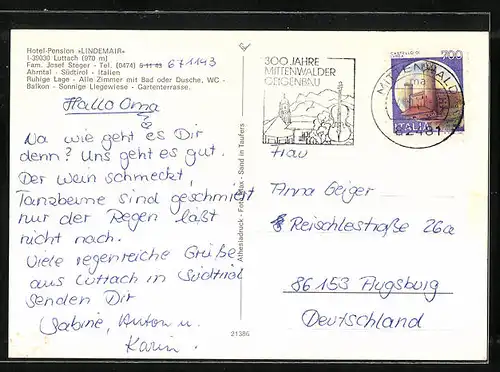 Hotel-Pension »LINDEMAIR«
I-39030 Luttach (970 m)
Fam. Josef Steger - Tel. (0474) 671143
Ahrntal - Südtirol - Italien
Ruhige Lage - Alle Zimmer mit Bad oder Dusche, WC -
Balkon - Sonnige Liegewiese - Gartenterrasse.
Hallo Oma
Na wie geht es Dir
denn? Uns geht es gut.
Der Wein schmeckt,
Tanzbeine sind geschmiert
nur der Regen läßt
nicht nach.
Viele regenreiche Grüße
aus Luttach in Südtirol
senden Dir
Sabine, Anton u.
Karin.
Athesiadruck - Foto - Sand in Taufers
21386
300 JAHRE
MITTENWALDER
GEIGENBAU
MITTENWALD
82481
700
ITALIA
Frau
Anna Geiger
Reischlestraße 26a
86153 Augsburg
Deutschland